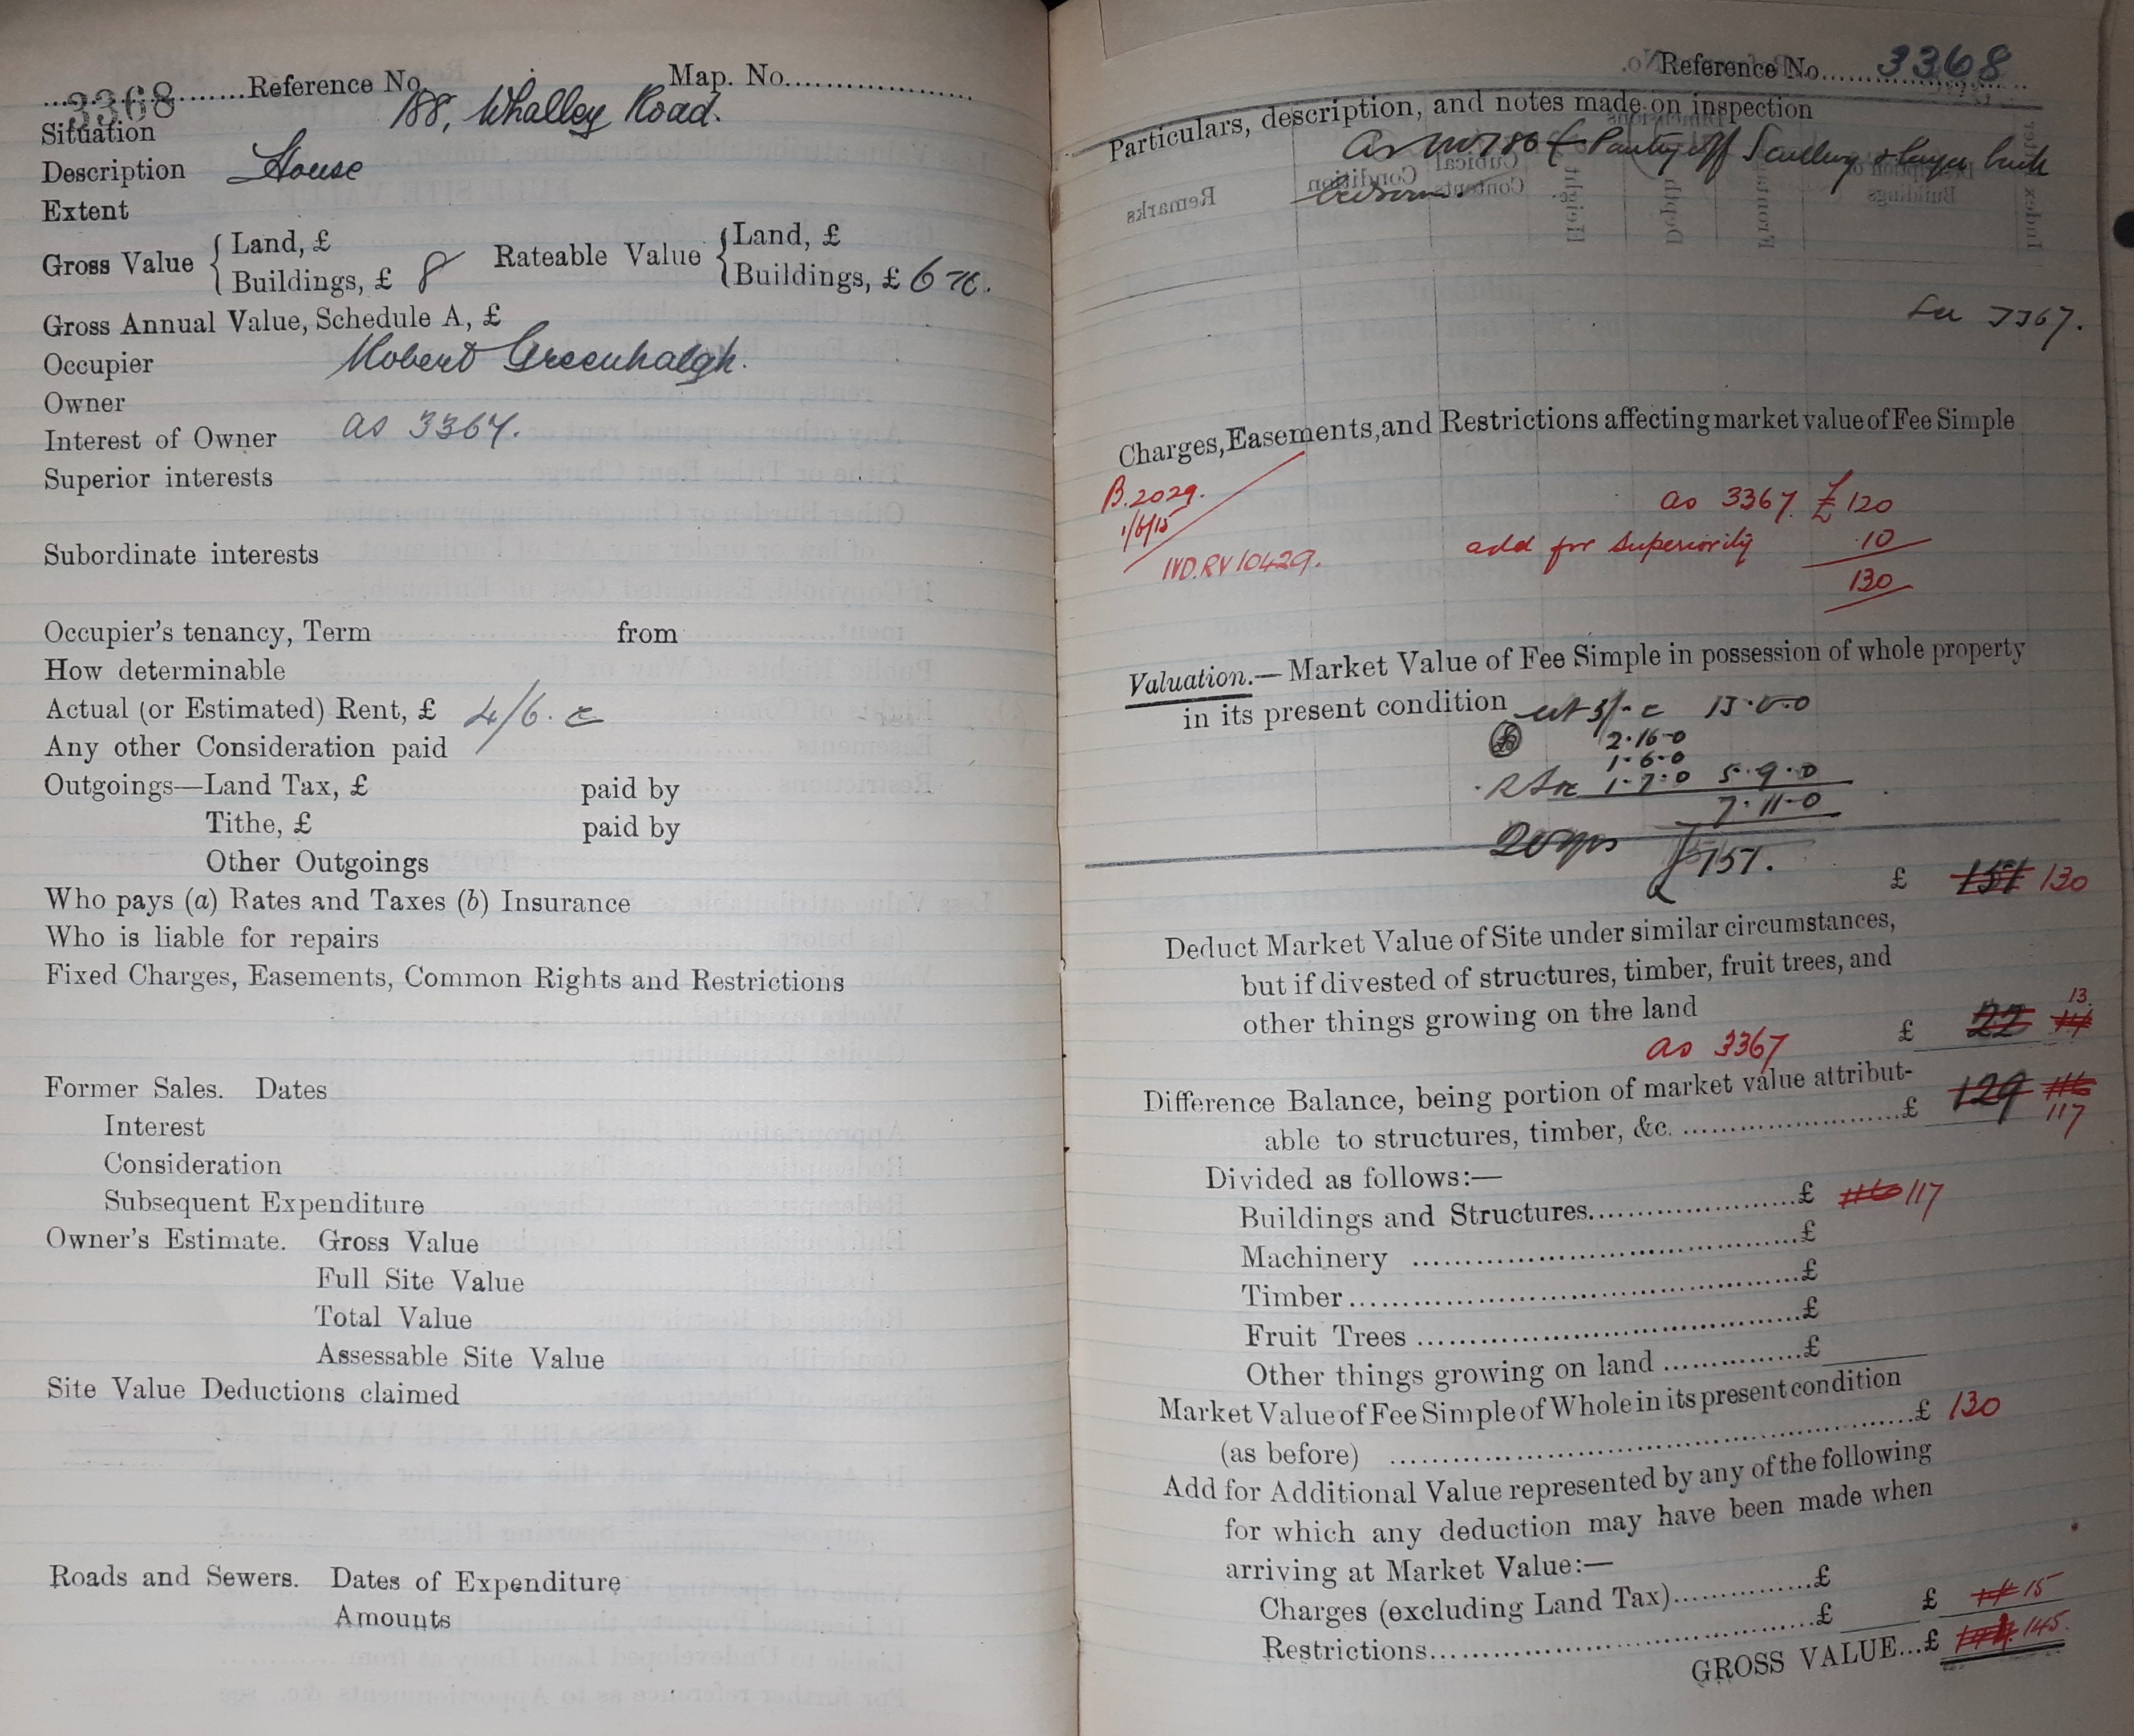 3368 Reference No. Map. No.
Situation 188, Whalley Road.
Description House
Extent
Gross Value { Land, £ Rateable Value { Land, £
Buildings, £ 8 Buildings, £ 6
Gross Annual Value, Schedule A, £
Occupier Robert Greenhalgh.
Owner
Interest of Owner as 3364.
Superior interests
Subordinate interests
Occupier's tenancy, Term from
How determinable
Actual (or Estimated) Rent, £ 4/6. c
Any other Consideration paid
Outgoings—Land Tax, £ paid by
Tithe, £ paid by
Other Outgoings
Who pays (a) Rates and Taxes (b) Insurance
Who is liable for repairs
Fixed Charges, Easements, Common Rights and Restrictions
Former Sales. Dates
Interest
Consideration
Subsequent Expenditure
Owner's Estimate. Gross Value
Full Site Value
Total Value
Assessable Site Value
Site Value Deductions claimed
Roads and Sewers. Dates of Expenditure
Amounts
Reference No. 3368
Particulars, description, and notes made on inspection
as no 186 & Pantry off Scullery & larger back
bedroom.
See 3367.
Charges, Easements, and Restrictions affecting market value of Fee Simple
B.2029.
1/6/15
IVD.RV 10429.
as 3367. £120
add for superiority 10
130
Valuation.— Market Value of Fee Simple in possession of whole property
in its present condition est 5/- c 13.0.0
2.16.0
1.6.0
1.7.0 5.9.0
7.11.0
20 yrs £151.
£ 151 130
Deduct Market Value of Site under similar circumstances,
but if divested of structures, timber, fruit trees, and
other things growing on the land £ 22 14 13.
as 3367
Difference Balance, being portion of market value attribut-
able to structures, timber, &c. £ 129 116 117
Divided as follows:—
Buildings and Structures £ 116 117
Machinery £
Timber £
Fruit Trees £
Other things growing on land £
Market Value of Fee Simple of Whole in its present condition
(as before) £ 130
Add for Additional Value represented by any of the following
for which any deduction may have been made when
arriving at Market Value:—
Charges (excluding Land Tax) £
Restrictions £ £ 14 15
GROSS VALUE...£ 144 145